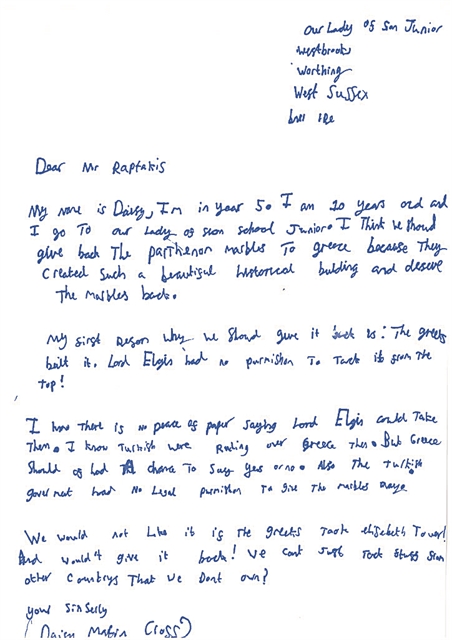 Our Lady of Sion Junior
Westbrooke
Worthing
West Sussex
Dear Mr Raptakis
My name is Daisy, I'm in year 5. I am 10 years old and
I go To our Lady of sion school Junior. I Think we should
give back The parthenon marbles To greece because They
created such a beautiful historical bulding and deserve
The marbles back.
My first reason why we should give it back is: The greeks
built it. Lord Elgin had no purmishon To Take it from the
top!
I know There is no peace of paper saying Lord Elgin could Take
Them. I know Turkish were Ruling over Greece Then. But Greece
should of had A chance To Say yes or no. Also The Turkish
goverment had No Legal purmishon To give The marbles away
We would not Like it if the greeks Took elizabeth Tower!
And would't give it back! We cant Just Took stuff from
other Countrys That We Dont own?
your Sinserly
Daisy Cross